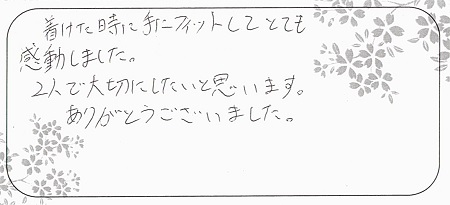 着けた時に手にフィットしてとても
感動しました。
2人で大切にしたいと思います。
ありがとうございました。